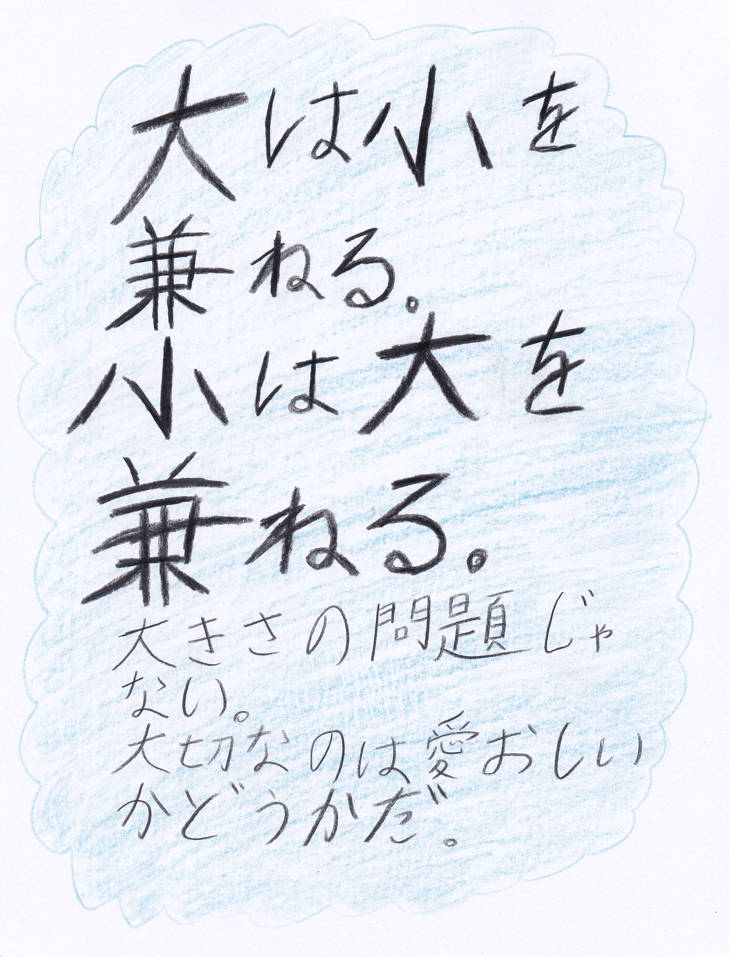 大は小を
兼ねる。
小は大を
兼ねる。
大きさの問題じゃ
ない。
大切なのは愛おしい
かどうかだ。